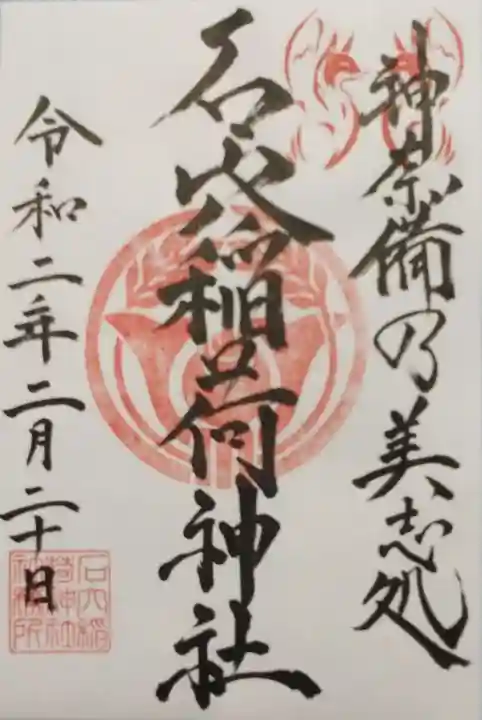 神奈備乃美志処
石穴稲荷神社
令和二年二月二十日
石穴稲
荷神社
社務所